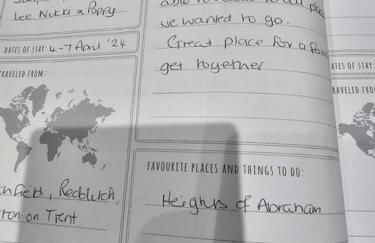 Lee Nikki & Poppy
DATES OF STAY: 4-7 April '24
TRAVELED FROM:
Redditch,
on Trent
we wanted to go.
Great place for a
get together
FAVOURITE PLACES AND THINGS TO DO:
Heights of Abraham
DATES OF STAY:
TRAVELED FROM: